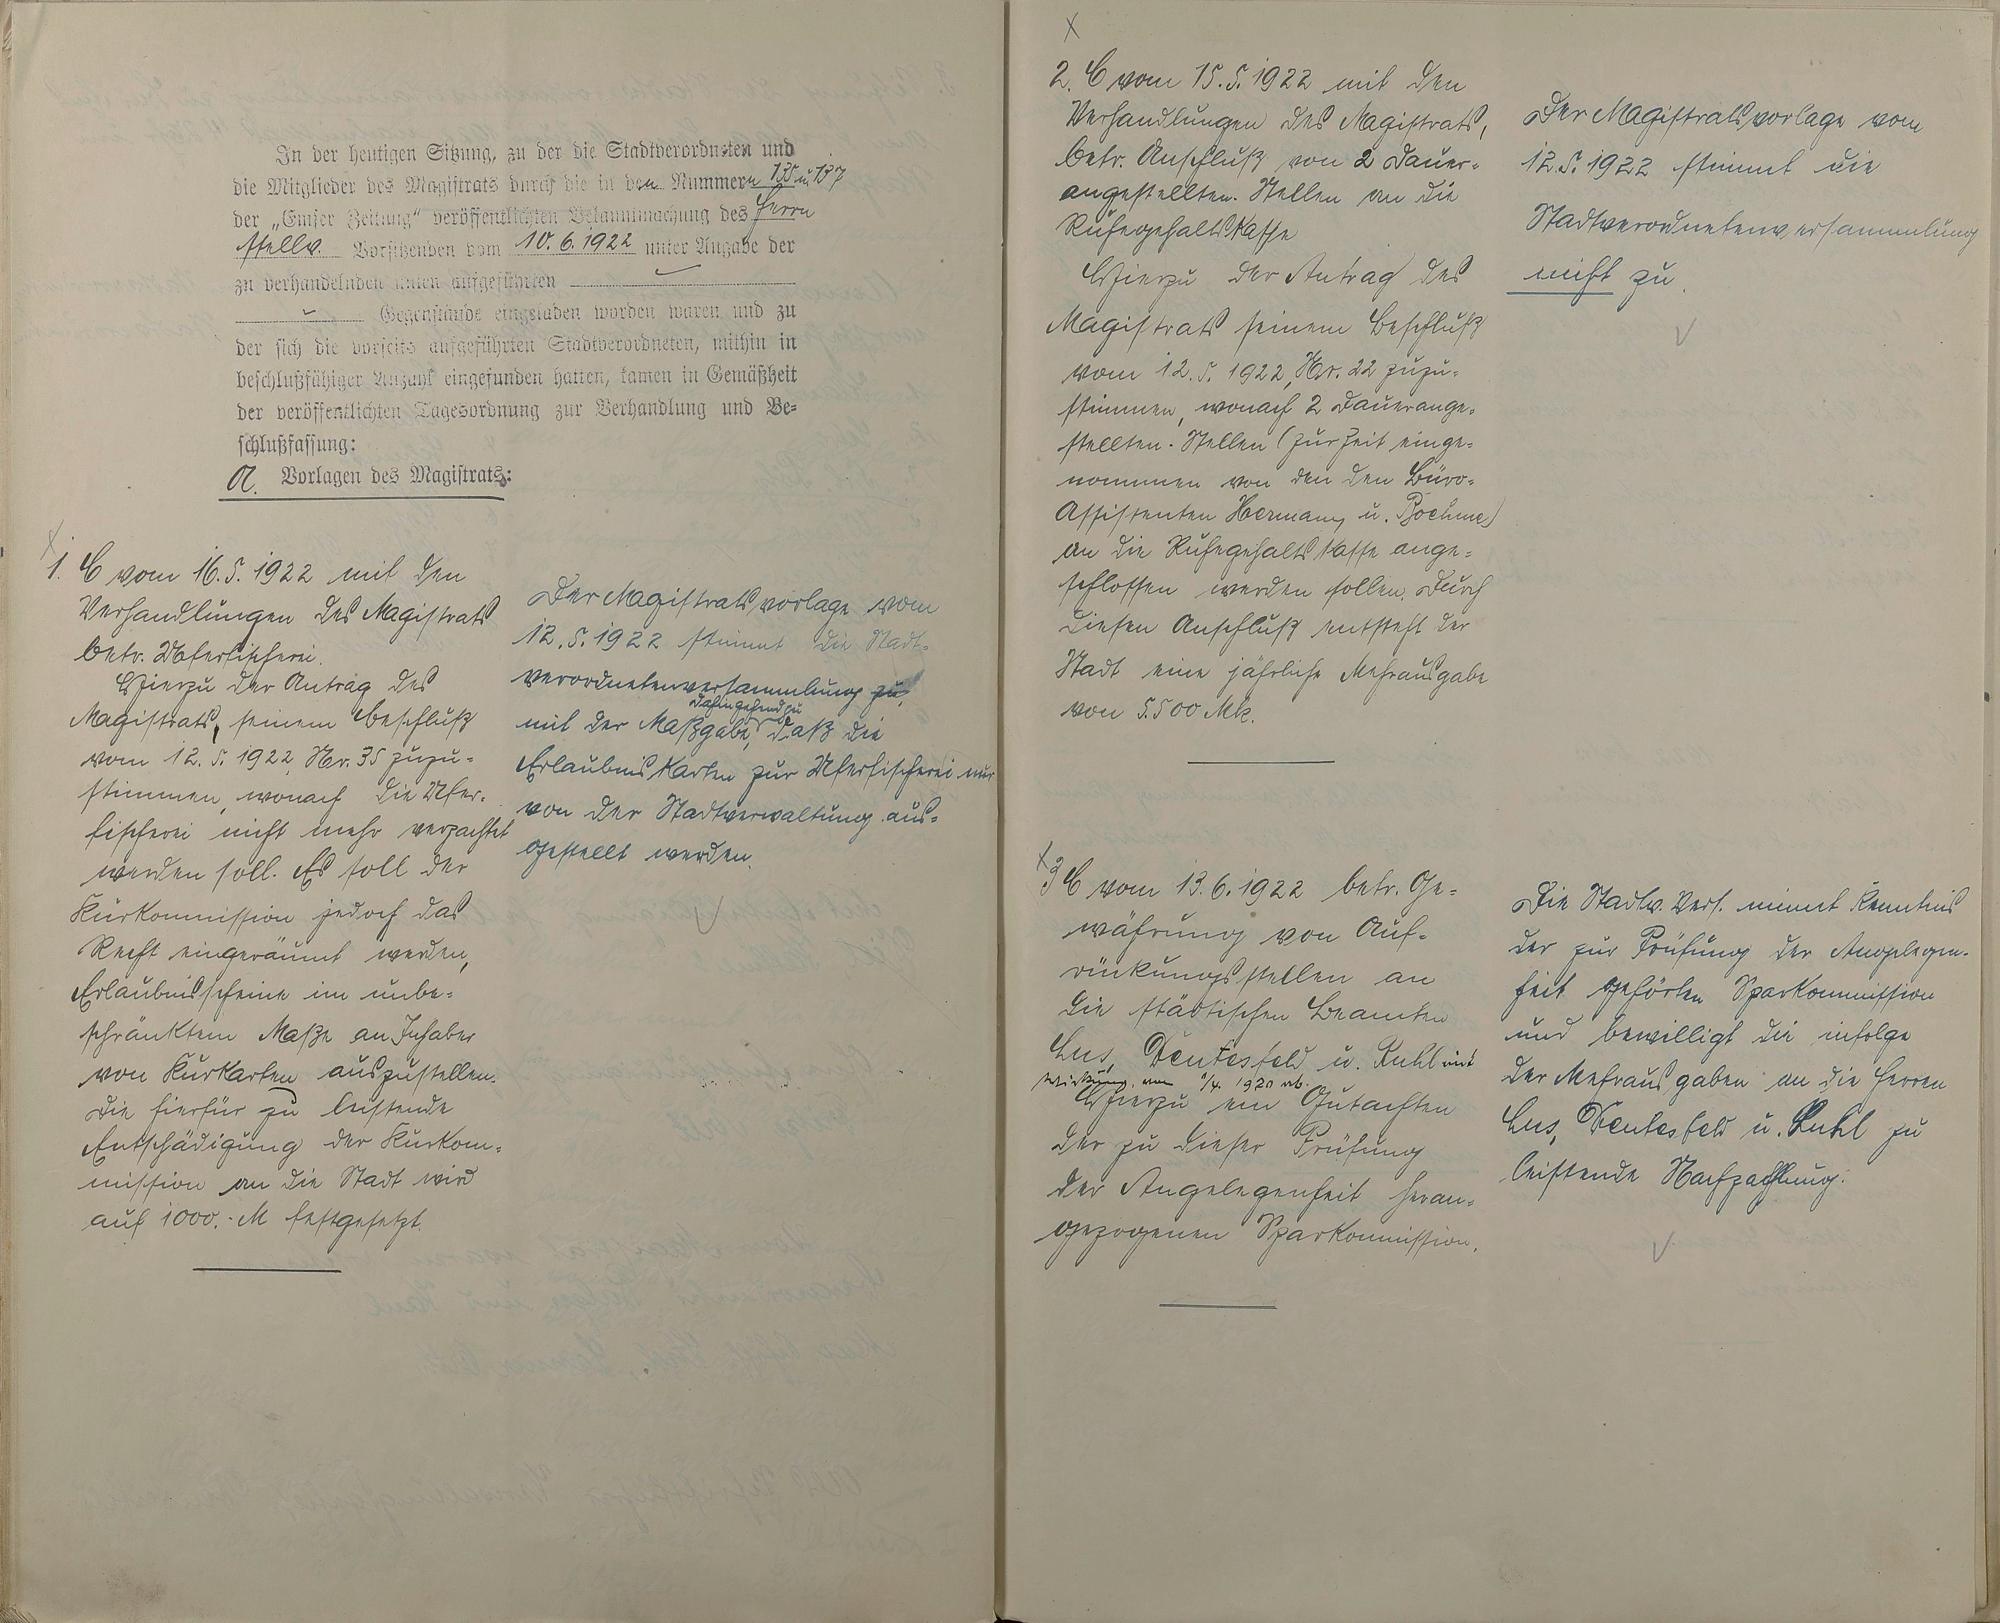 In der heutigen Sitzung, zu der die Stadtverordneten und
die Mitglieder des Magistrats durch die in den Nummern 135 u. 137
der „Emser Zeitung“ veröffentlichten Bekanntmachung des Herrn
stellv. Vorsitzenden vom 10.6.1922 unter Angabe der
zu verhandelnden unten aufgeführten
Gegenstände eingeladen worden waren und zu
der sich die vorseits aufgeführten Stadtverordneten, mithin in
beschlußfähiger Anzahl eingefunden hatten, kamen in Gemäßheit
der veröffentlichten Tagesordnung zur Verhandlung und Be-
schlußfassung:
A. Vorlagen des Magistrats:
1. C vom 16.5.1922 mit den
Verhandlungen des Magistrats
betr. Uferfischerei.
Hierzu der Antrag des
Magistrats, seinem Beschluß
vom 12.5.1922, Nr. 35 zuzu-
stimmen, wonach die Ufer-
fischerei nicht mehr verpachtet
werden soll. Es soll der
Kurkommission jedoch das
Recht eingeräumt werden,
Erlaubnisscheine im unbe-
schränktem Maße an Inhaber
von Kurkarten auszustellen.
Die hierfür zu leistende
Entschädigung der Kurkom-
mission an die Stadt wird
auf 1000.- M festgesetzt.
Der Magistratsvorlage vom
12.5.1922 stimmt die Stadt-
verordnetenversammlung zu,
dahingehend zu
mit der Maßgabe, daß die
Erlaubniskarten zur Uferfischerei nur
von der Stadtverwaltung aus-
gestellt werden.
2. C vom 15.5.1922 mit den
Verhandlungen des Magistrats,
betr. Anschluß von 2 Dauer-
angestellten-Stellen an die
Ruhegehaltskasse
Hierzu der Antrag des
Magistrats seinem Beschluß
vom 12.5.1922, Nr. 22 zuzu-
stimmen, wonach 2 Dauerange-
stellten-Stellen (zur Zeit einge-
nommen von den den Büro-
Assistenten Hermann u. Boehme)
an die Ruhegehaltskasse ange-
schlossen werden sollen. Durch
diesen Anschluß entsteht der
Stadt eine jährliche Mehrausgabe
von 5.500 Mk.
Der Magistratsvorlage vom
12.5.1922 stimmt die
Stadtverordnetenversammlung
nicht zu.
3 C vom 13.6.1922 betr. Ge-
währung von Auf-
rückungsstellen an
die städtischen Beamten
Lus, Deutesfeld u. Kuhl mit
Wirkung vom 1/4. 1920 ab.
Hierzu ein Gutachten
der zu dieser Prüfung
der Angelegenheit heran-
gezogenen Sparkommission.
Die Stadtv. Vers. nimmt Kenntnis
der zur Prüfung der Angelegen-
heit gehörten Sparkommission
und bewilligt die infolge
der Mehrausgaben an die Herren
Lus, Deutesfeld u. Kuhl zu
leistende Nachzahlung.